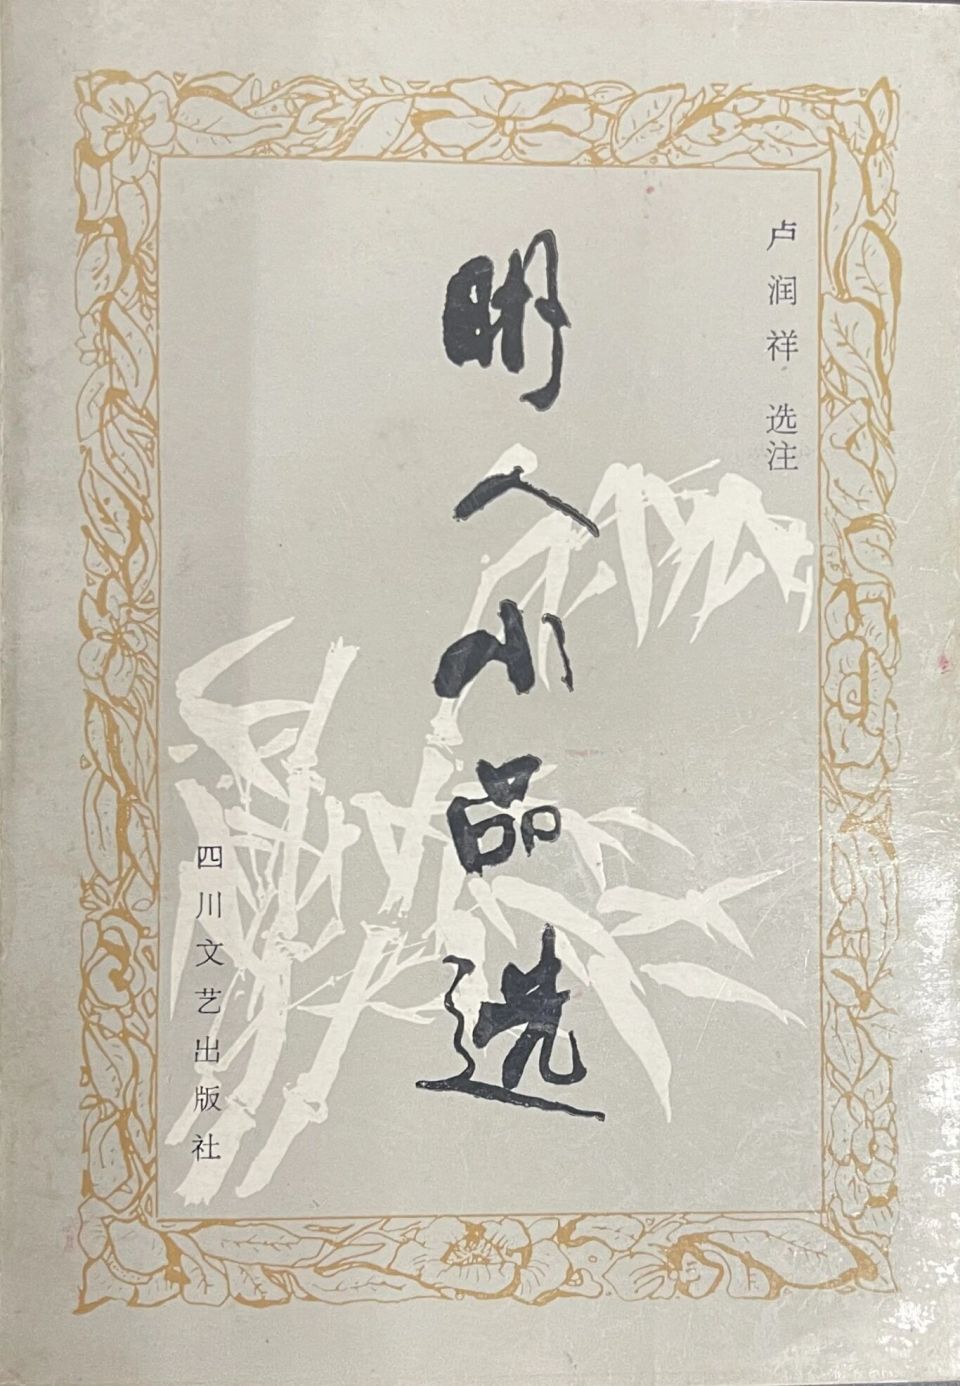 卢润祥 选注
明人小品选
四川文艺出版社